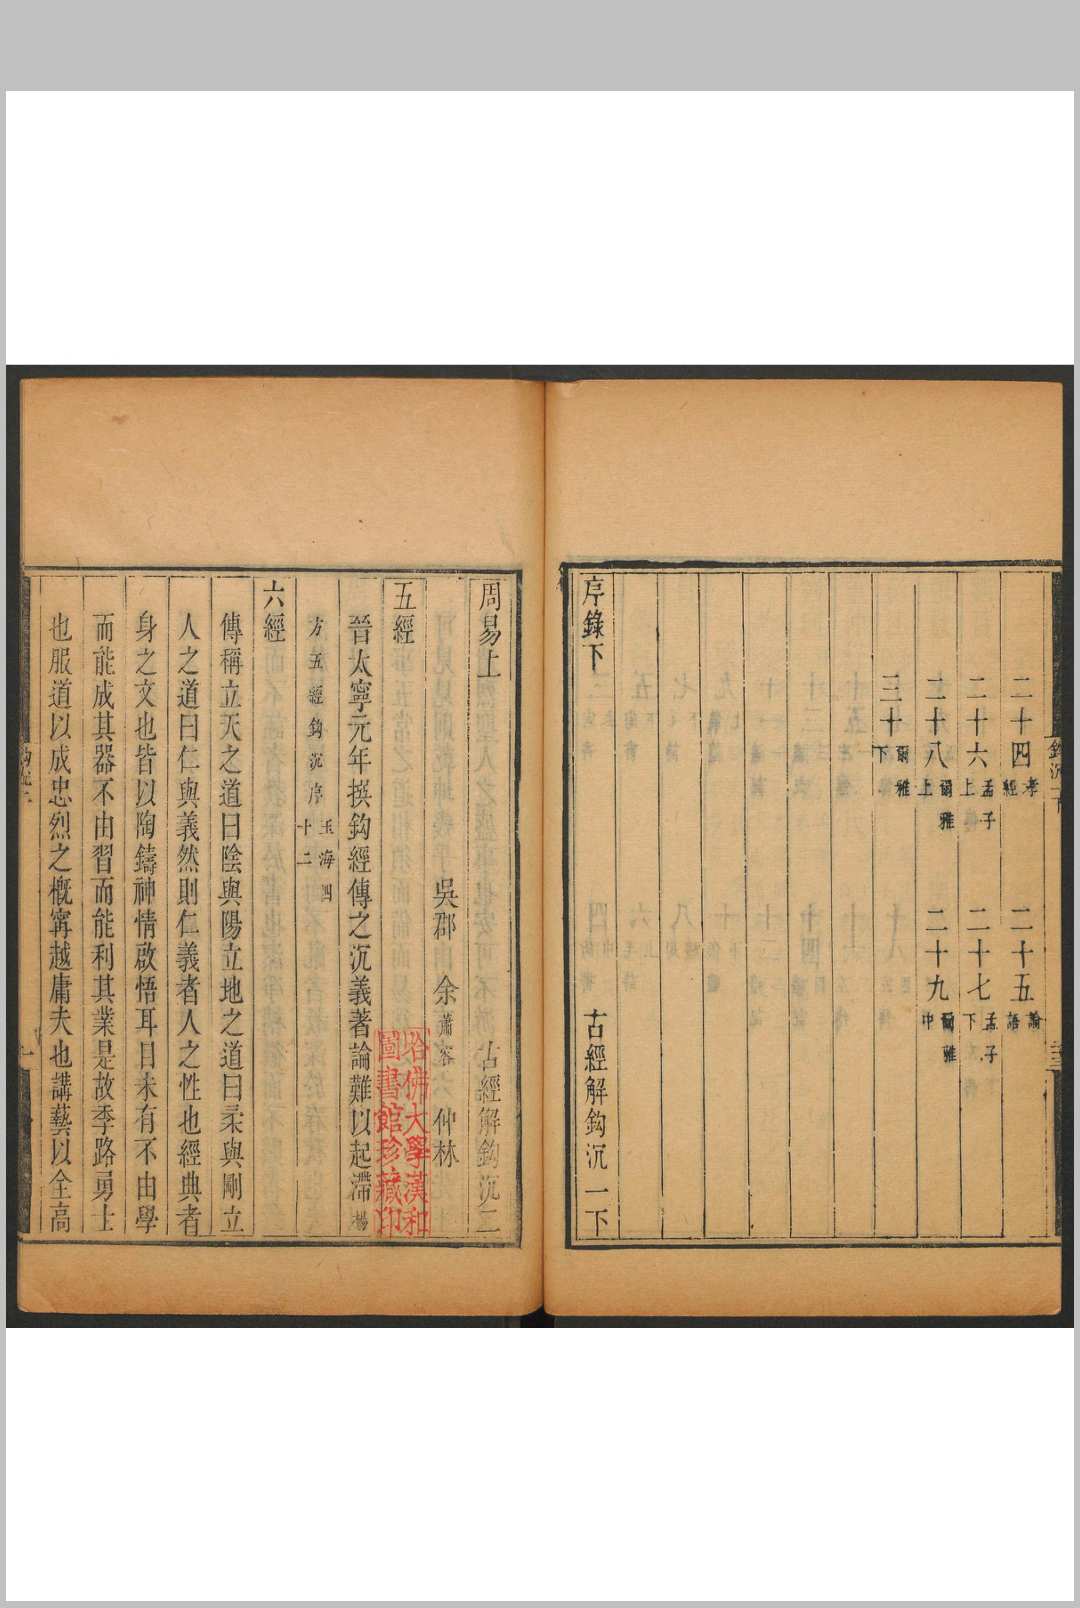 二十四 孝經 二十五 論語
二十六 孟子上 二十七 孟子下
二十八 爾雅上 二十九 爾雅中
三十 爾雅下
序錄下 古經解鈎沉一下
周易上 古經解鈎沉二
吳郡 余蕭客 仲林
五經
晉太寧元年撰鈎經傳之沉義著論難以起滯 楊
方五經鈎沉序 玉海四十二
六經
傳稱立天之道曰陰與陽立地之道曰柔與剛立
人之道曰仁與義然則仁義者人之性也經典者
身之文也皆以陶鑄神情啟悟耳目未有不由學
而能成其器不由習而能利其業是故季路勇士
也服道以成忠烈之概寗越庸夫也講藝以全高
哈佛大學漢和
圖書館珍藏印